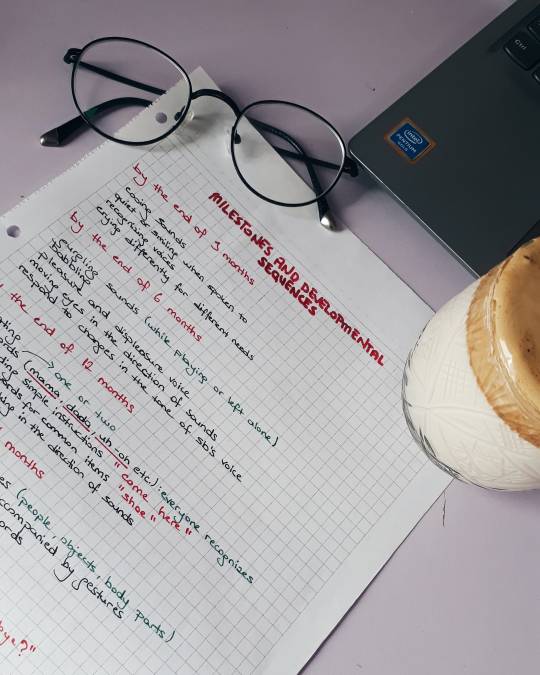 MILESTONES AND DEVELOPMENTAL
SEQUENCES
by the end of 3 months
cooing sounds
quiet or smiling when spoken to
recognising voices
crying differently for different needs
by the end of 6 months
gurgling sounds (while playing or left alone)
babbling
pleasure and displeasure voice
moving eyes in the direction of sounds
respond to changes in the tone of sb's voice
the end of 12 months
one or two
(mama, dada, uh-oh etc): everyone recognizes
simple instructions "come here"
for common items "shoe"
in the direction of sounds
months
(people, objects, body parts)
accompanied by gestures
bye?"
intel
PENTIUM
Ctrl